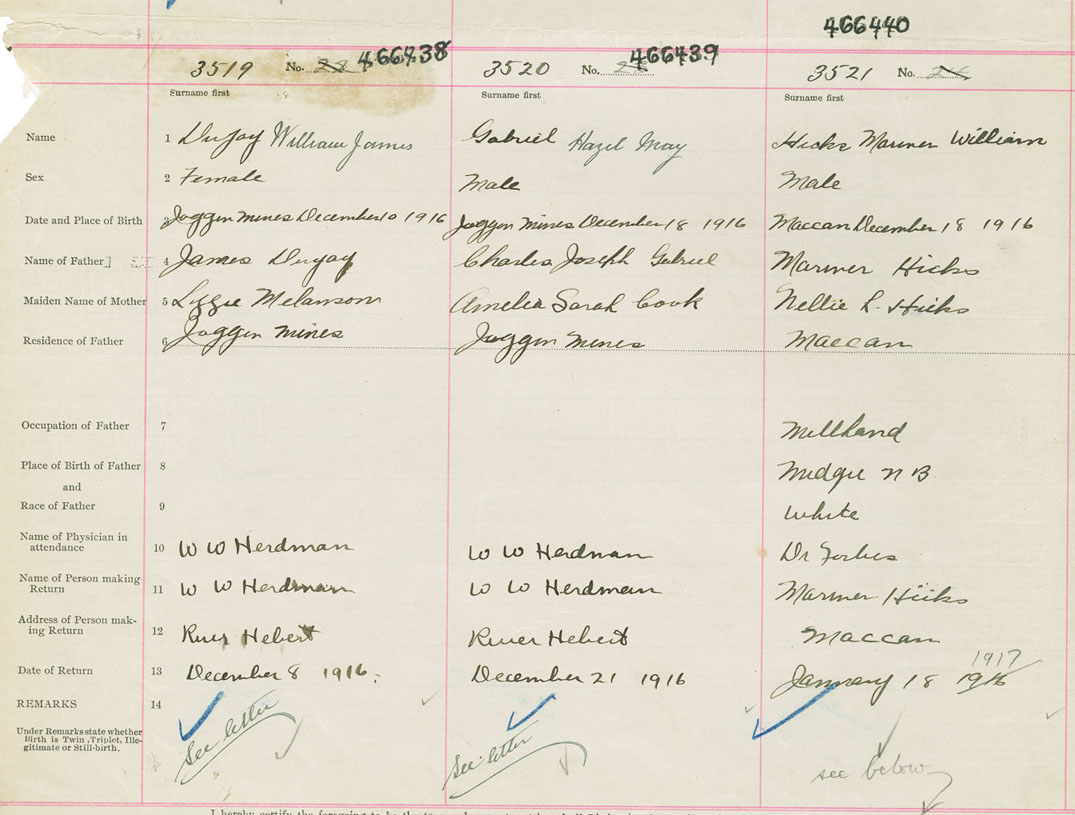 466440
3519 No. 466438 3520 No. 466439 3521 No.
Surname first Surname first Surname first
Name 1 Dugay William James Gabriel Hazel May Hicks Mariner William
Sex 2 Female Male Male
Date and Place of Birth 3 Joggin Mines December 10 1916 Joggin Mines December 18 1916 Maccan December 18 1916
Name of Father 4 James Dugay Charles Joseph Gabriel Mariner Hicks
Maiden Name of Mother 5 Lizzie Melanson Amelia Sarah Cook Nellie L. Hicks
Residence of Father 6 Joggin Mines Joggin Mines Maccan
Occupation of Father 7 Millhand
Place of Birth of Father 8 Midgie N B
and
Race of Father 9 White
Name of Physician in
attendance 10 W W Herdman W W Herdman Dr Forbes
Name of Person making
Return 11 W W Herdman W W Herdman Mariner Hicks
Address of Person mak-
ing Return 12 River Hebert River Hebert Maccan
1917
Date of Return 13 December 8 1916. December 21 1916 January 18 1916
REMARKS 14
Under Remarks state whether
Birth is Twin, Triplet, Ille-
gitimate or Still-birth.
See letter See letter see below
I hereby certify the foregoing to be the